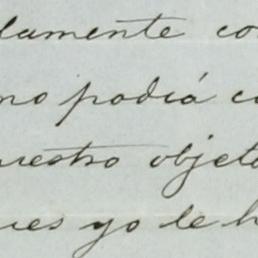 lamente co
no podiá c
uestro objet
ues yo le h